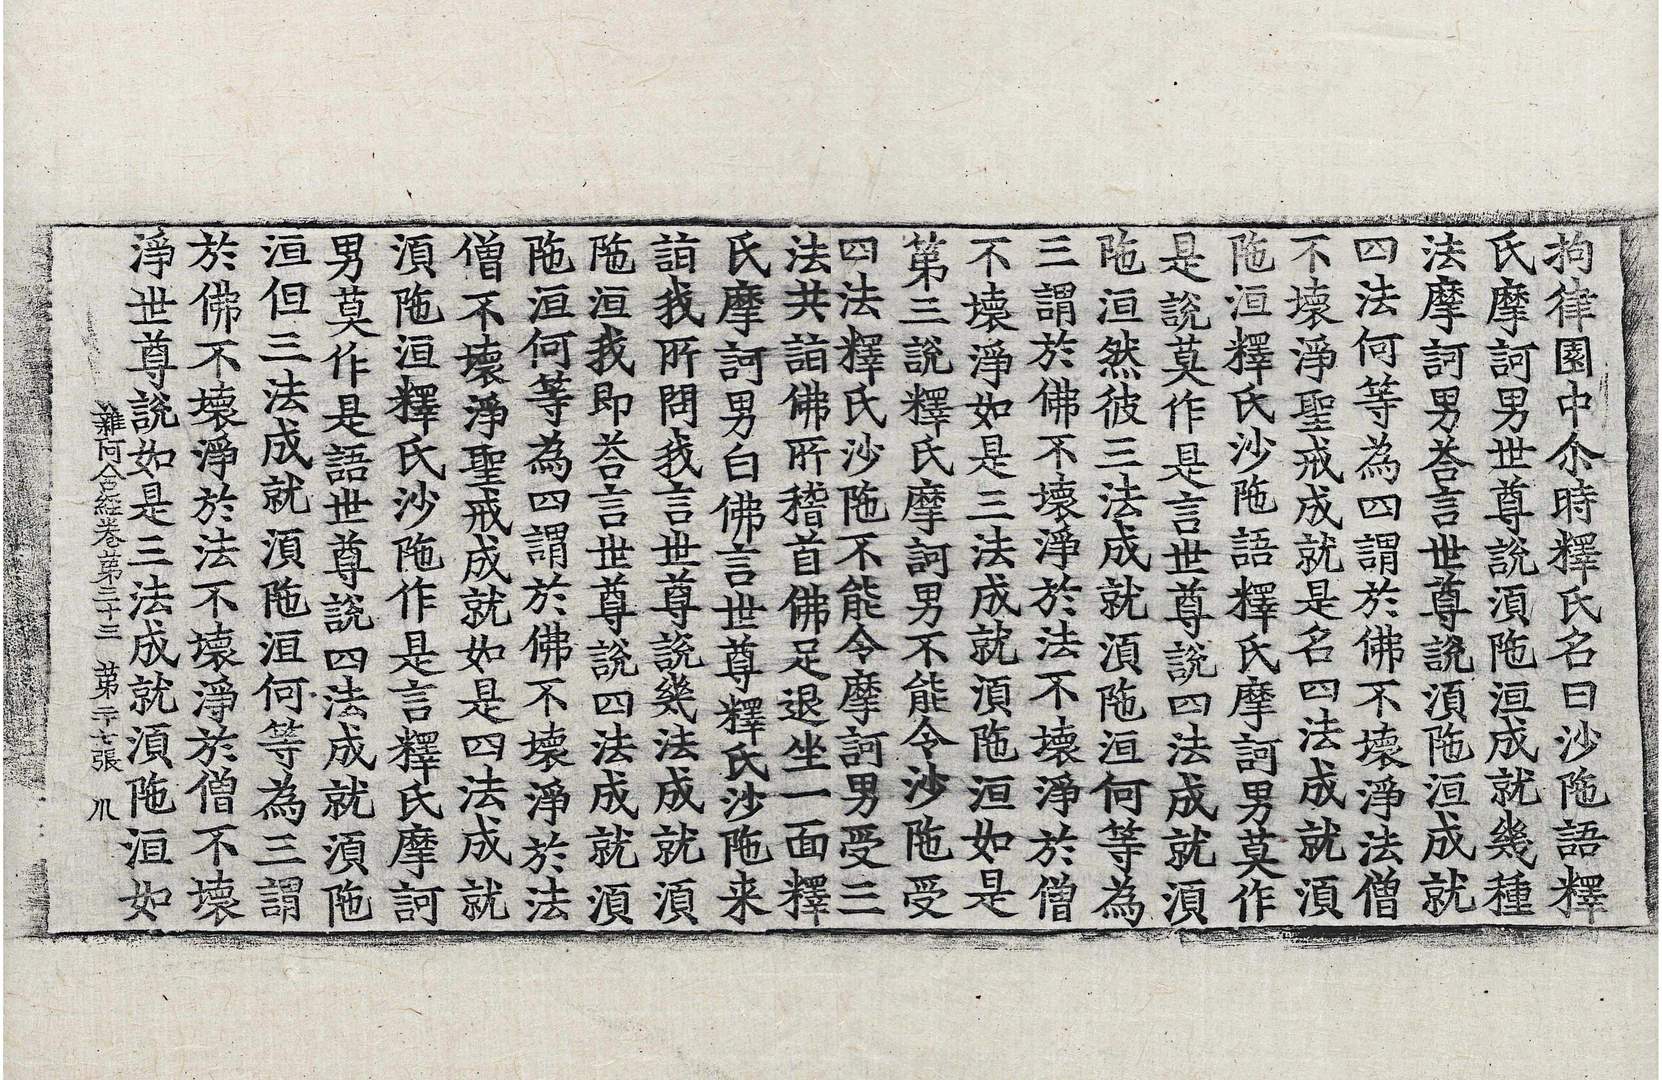 拘律園中尒時釋氏名曰沙陁語釋
氏摩訶男世尊說湏陁洹成就幾種
法摩訶男荅言世尊說湏陁洹成就
四法何等為四謂於佛不壞淨法僧
不壞淨聖戒成就是名四法成就湏
陁洹釋氏沙陁語釋氏摩訶男莫作
是說莫作是言世尊說四法成就湏
陁洹然彼三法成就湏陁洹何等為
三謂於佛不壞淨於法不壞淨於僧
不壞淨如是三法成就湏陁洹如是
第三說釋氏摩訶男不能令沙陁受
四法釋氏沙陁不能令摩訶男受三
法共詣佛所稽首佛足退坐一面釋
氏摩訶男白佛言世尊釋氏沙陁来
詣我所問我言世尊說幾法成就湏
陁洹我即荅言世尊說四法成就湏
陁洹何等為四謂於佛不壞淨於法
僧不壞淨聖戒成就如是四法成就
湏陁洹釋氏沙陁作是言釋氏摩訶
男莫作是語世尊說四法成就湏陁
洹但三法成就湏陁洹何等為三謂
於佛不壞淨於法不壞淨於僧不壞
淨世尊說如是三法成就湏陁洹如
雜阿含經卷第三十三 第二十七張 㸦